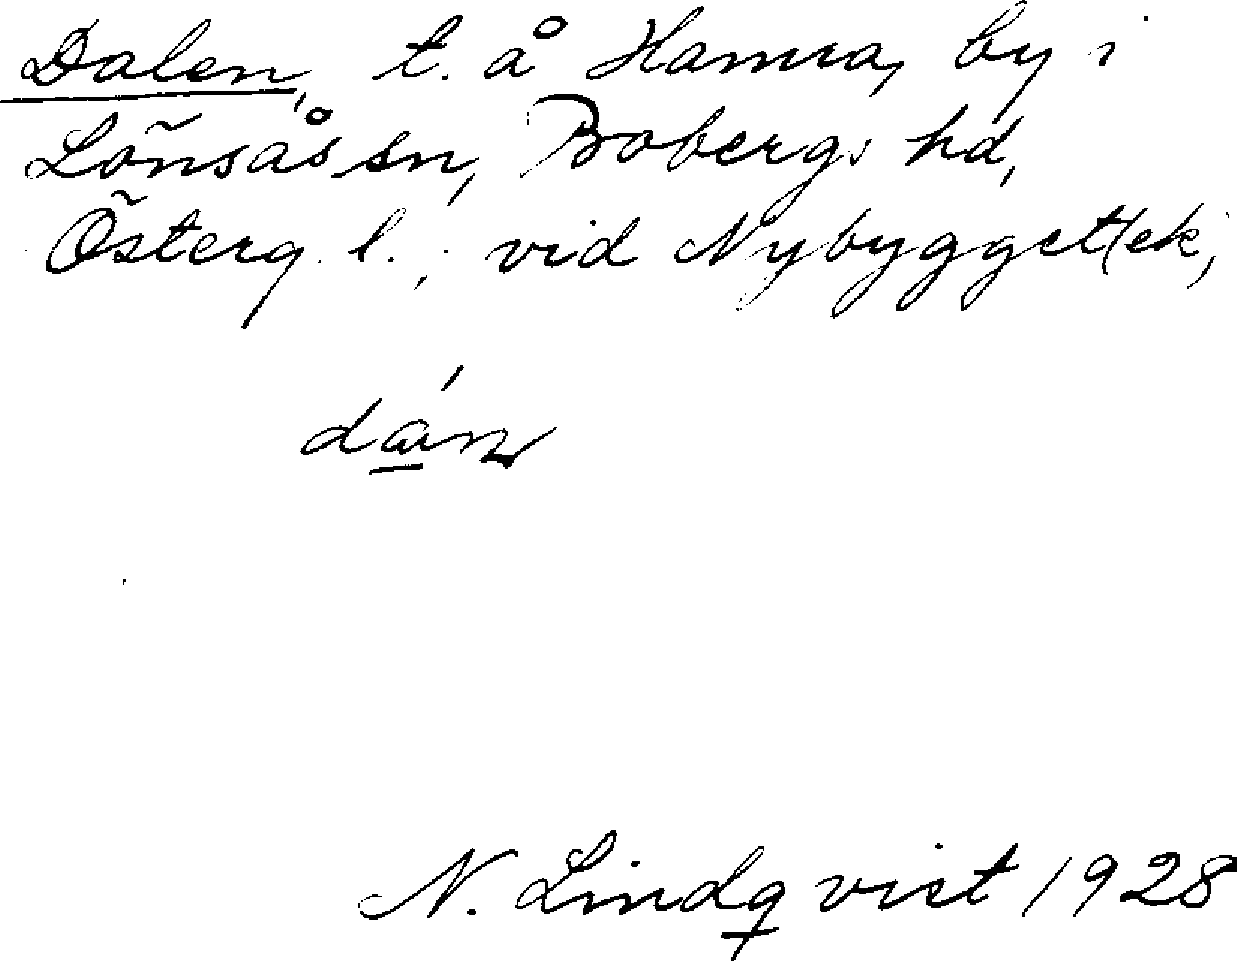 Dalen, t. å Hamra, by i
Lönsås sn, Bobergs hd,
Österg. l., vid Nybygget(ek,
dán
N. Lindqvist 1928